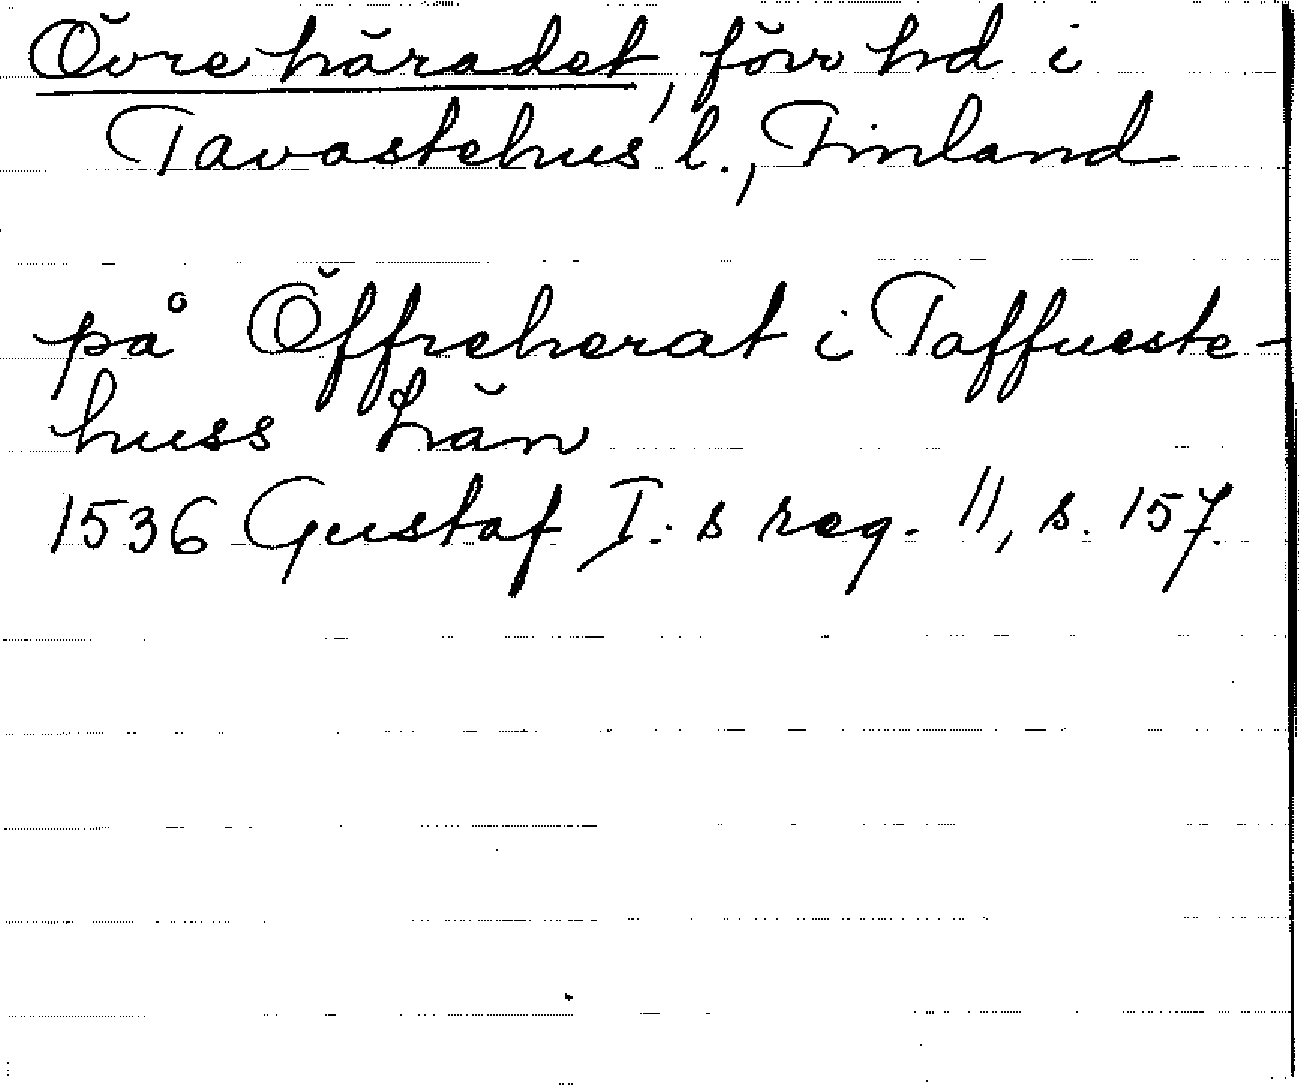 Övre häradet, förr hd i
Tavastehus l., Finland
på Öffreherat i Taffueste-
huss län
1536 Gustaf I:s reg. 11, s. 157.